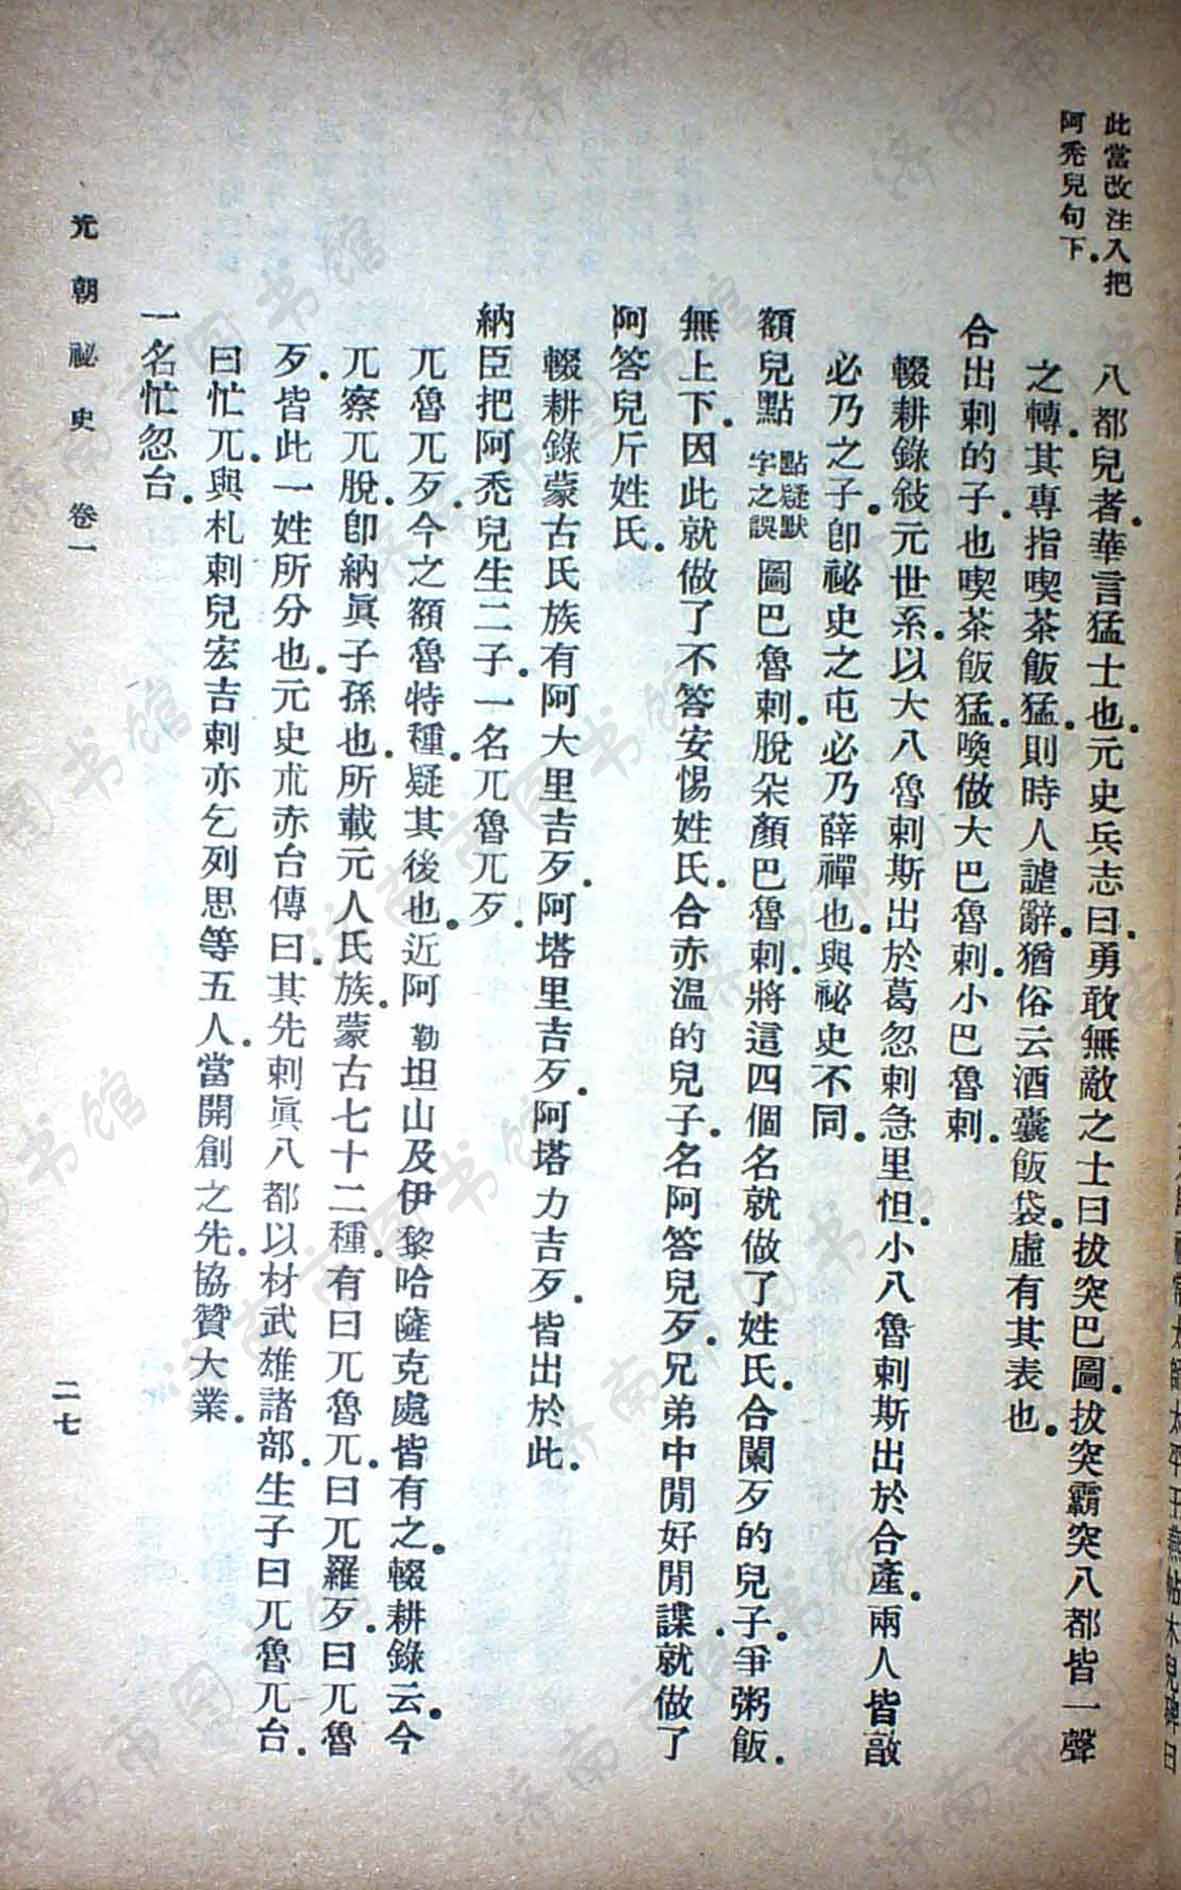 此當改注入把
阿禿兒句下.
八都兒者.華言猛士也.元史兵志曰.勇敢無敵之士曰拔突巴圖.拔突霸突八都皆一聲
之轉.其專指喫茶飯猛.則時人謔辭.猶俗云酒囊飯袋.虛有其表也.
合出剌的子.也喫茶飯猛.喚做大巴魯剌.小巴魯剌.
輟耕錄敍元世系.以大八魯剌斯出於葛忽剌急里怛.小八魯剌斯出於合產.兩人皆敵
必乃之子.卽祕史之屯必乃薛禪也.與祕史不同.
額兒點 點疑默字之誤 圖巴魯剌.脫朵顏巴魯剌.將這四個名就做了姓氏.合闌歹的兒子.爭粥飯.
無上下.因此就做了不答安惕姓氏.合赤溫的兒子.名阿答兒歹.兄弟中閒好閒諜.就做了
阿答兒斤姓氏.
輟耕錄蒙古氏族有阿大里吉歹.阿塔里吉歹.阿塔力吉歹.皆出於此.
納臣把阿禿兒生二子.一名兀魯兀歹.
兀魯兀歹.今之額魯特種.疑其後也.近阿勒坦山及伊黎哈薩克處皆有之.輟耕錄云.今
兀察兀脫.卽納眞子孫也.所載元人氏族.蒙古七十二種.有曰兀魯兀.曰兀羅歹.曰兀魯
歹.皆此一姓所分也.元史朮赤台傳曰.其先剌眞八都以材武雄諸部.生子曰兀魯兀台.
曰忙兀.與札剌兒宏吉剌亦乞列思等五人.當開創之先.協贊大業.
一名忙忽台.
元朝祕史 卷一
二七